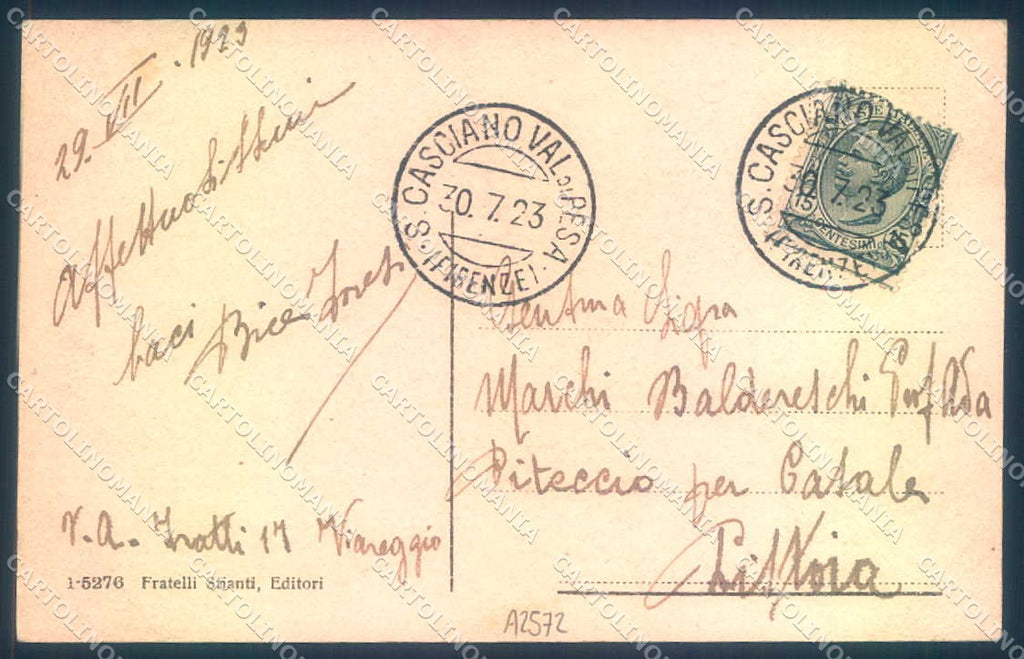 29. VII. 1923
Affettuosissimi
baci Bice
V. A. Fratti 17 Viareggio
1-5276 Fratelli Stianti, Editori
S. CASCIANO VAL DI PESA
30. 7. 23
(FIRENZE)
S. CASCIANO VAL DI PESA
30. 7. 23
(FIRENZE)
15
CENTESIMI
Gentma Sigra
Marchi Baldereschi Prof Ada
Piteccio per Casale
Pistoia
A2572
CARTOLINOMANIA